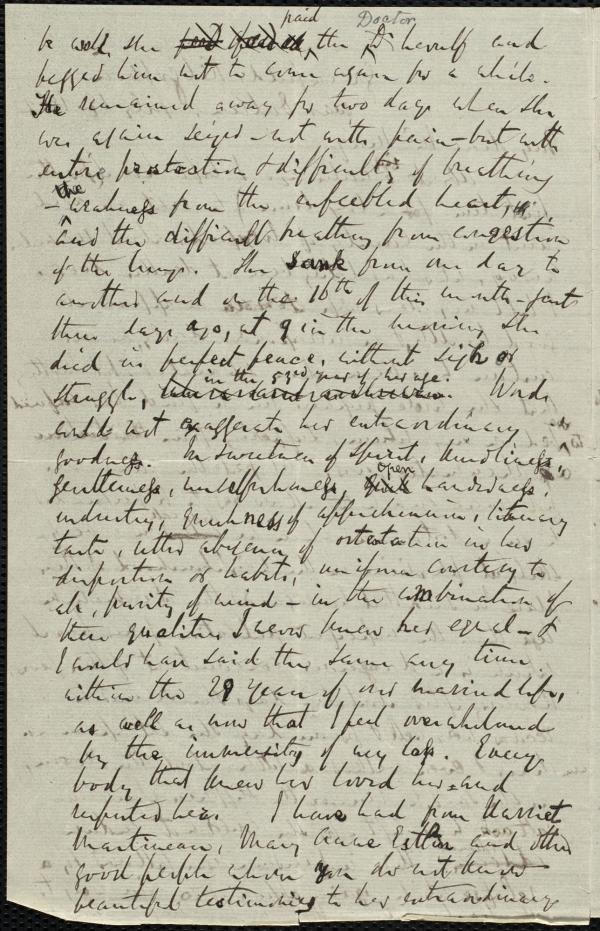 paid Doctor
be well she paid the Dr herself and
begged him not to come again for a while.
He remained away for two days when she
was again seized – not with pain – but with
entire prostration & difficulty of breathing
– the weakness from the enfeebled heart,
and the difficult breathing from congestion
of the lungs. She sank from one day to
another and on the 16th of this month – just
three days ago, at 9 in the morning she
died in perfect peace, without sigh or
in the 53rd year of her age.
struggle, Words
could not exaggerate her extraordinary
goodness. In sweetness of spirit, kindliness,
open
gentleness, unselfishness, handedness,
industry, quickness of apprehension, literary
taste, utter absence of ostentation in her
disposition or habits, uniform courtesy to
all, purity of mind – in the combination of
these qualities I never knew her equal – &
I would have said the same any time
within the 29 years of our married life,
as well as now that I feel overwhelmed
by the immensity of my loss. Every
body that knew her loved her and
respected her. I have had from Harriet
Martineau, Mary Anne Estlin and other
good people whom you do not know
beautiful testimonies to her extraordinary